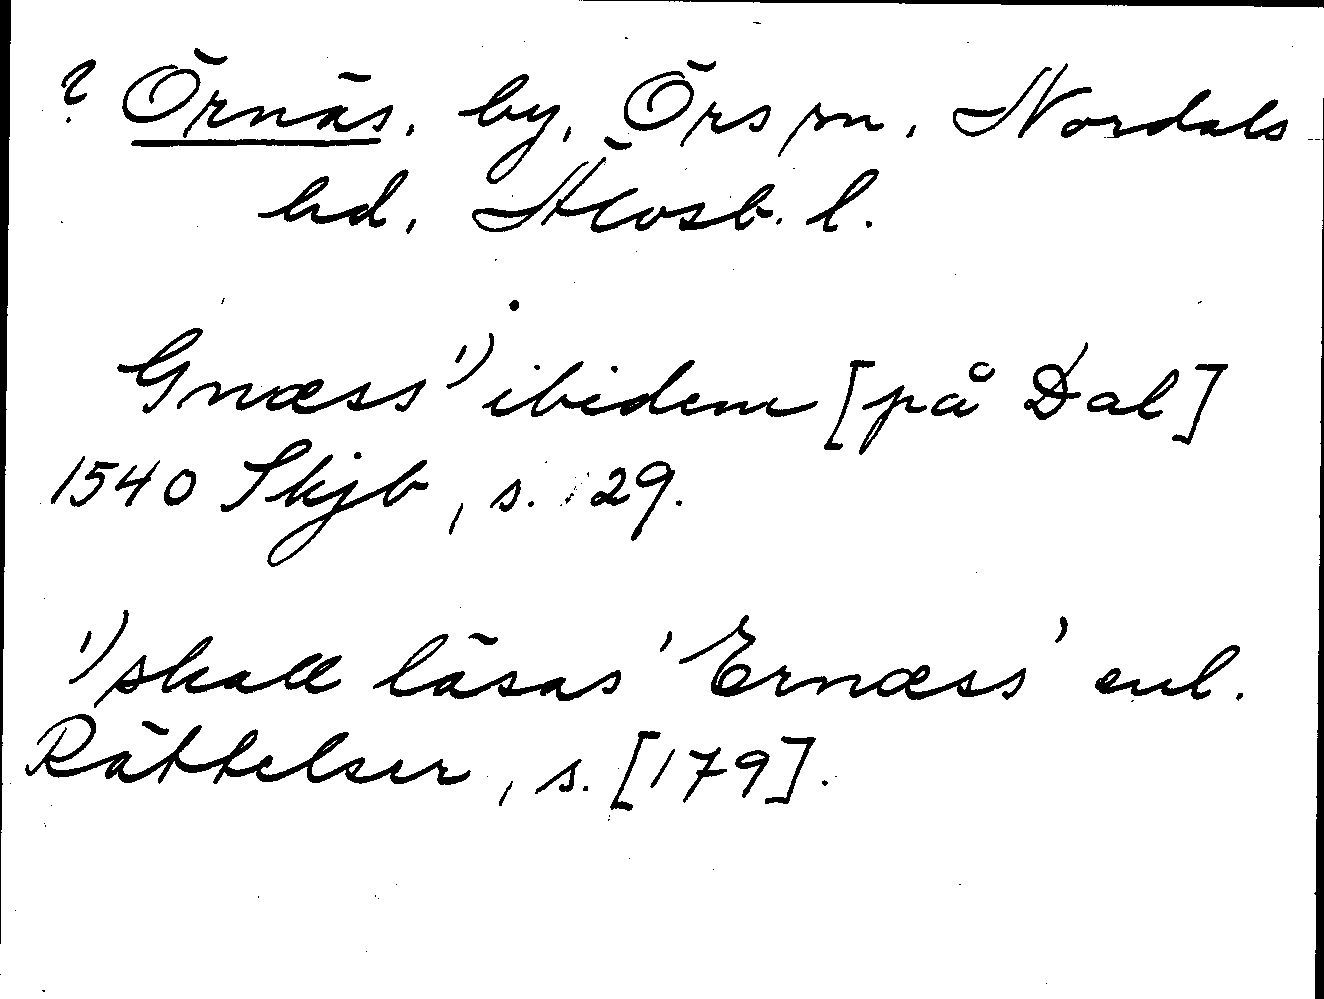 ? Örnäs, by, Örs sn, Nordals
hd, Älvsb. l.
Gnæss ¹) ibidem [på Dal]
1540 Skjb, s. 29.
¹) skall läsas 'Ernæss' enl.
Rättelser, s. [179].